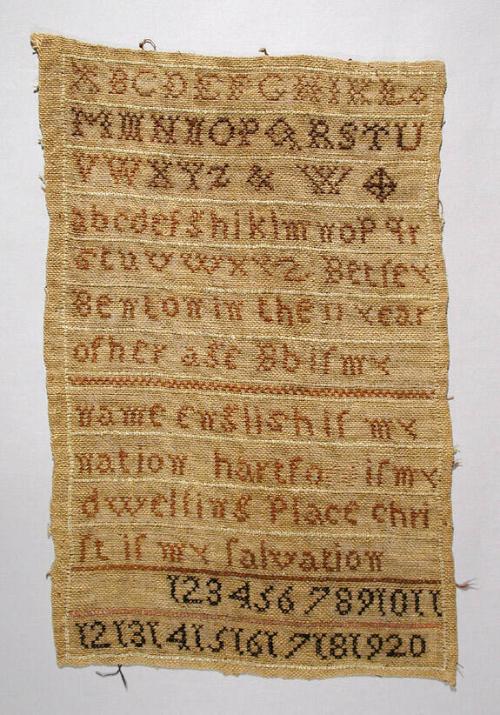 ABCDEFGHIKL
MMNNOPQRSTU
VWXYZ & W
abcdefghiklmnopqr
stuvwxyz Betsey
Benton in the 11 year
of her age Bb iſ my
name engliſh iſ my
nation hartfo iſ my
dwelling place chri
ſt iſ my ſalvation
1234567891011
121314151617181920